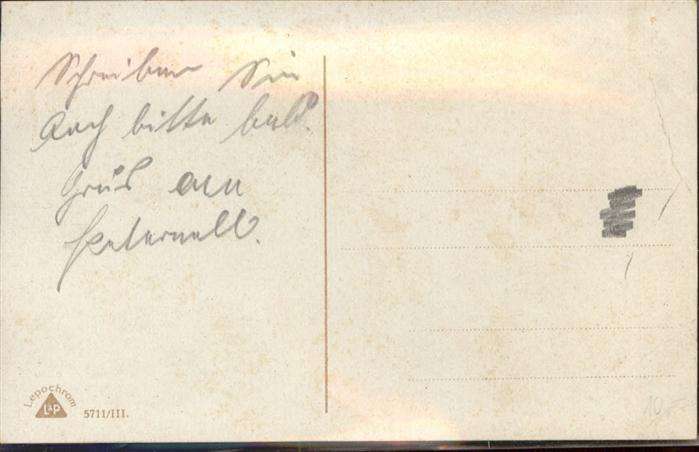 Schreiben Sie
Auch bitte bald.
Gruß an
Peternell.
Lepochrom
L&P
5711/III.
10,-